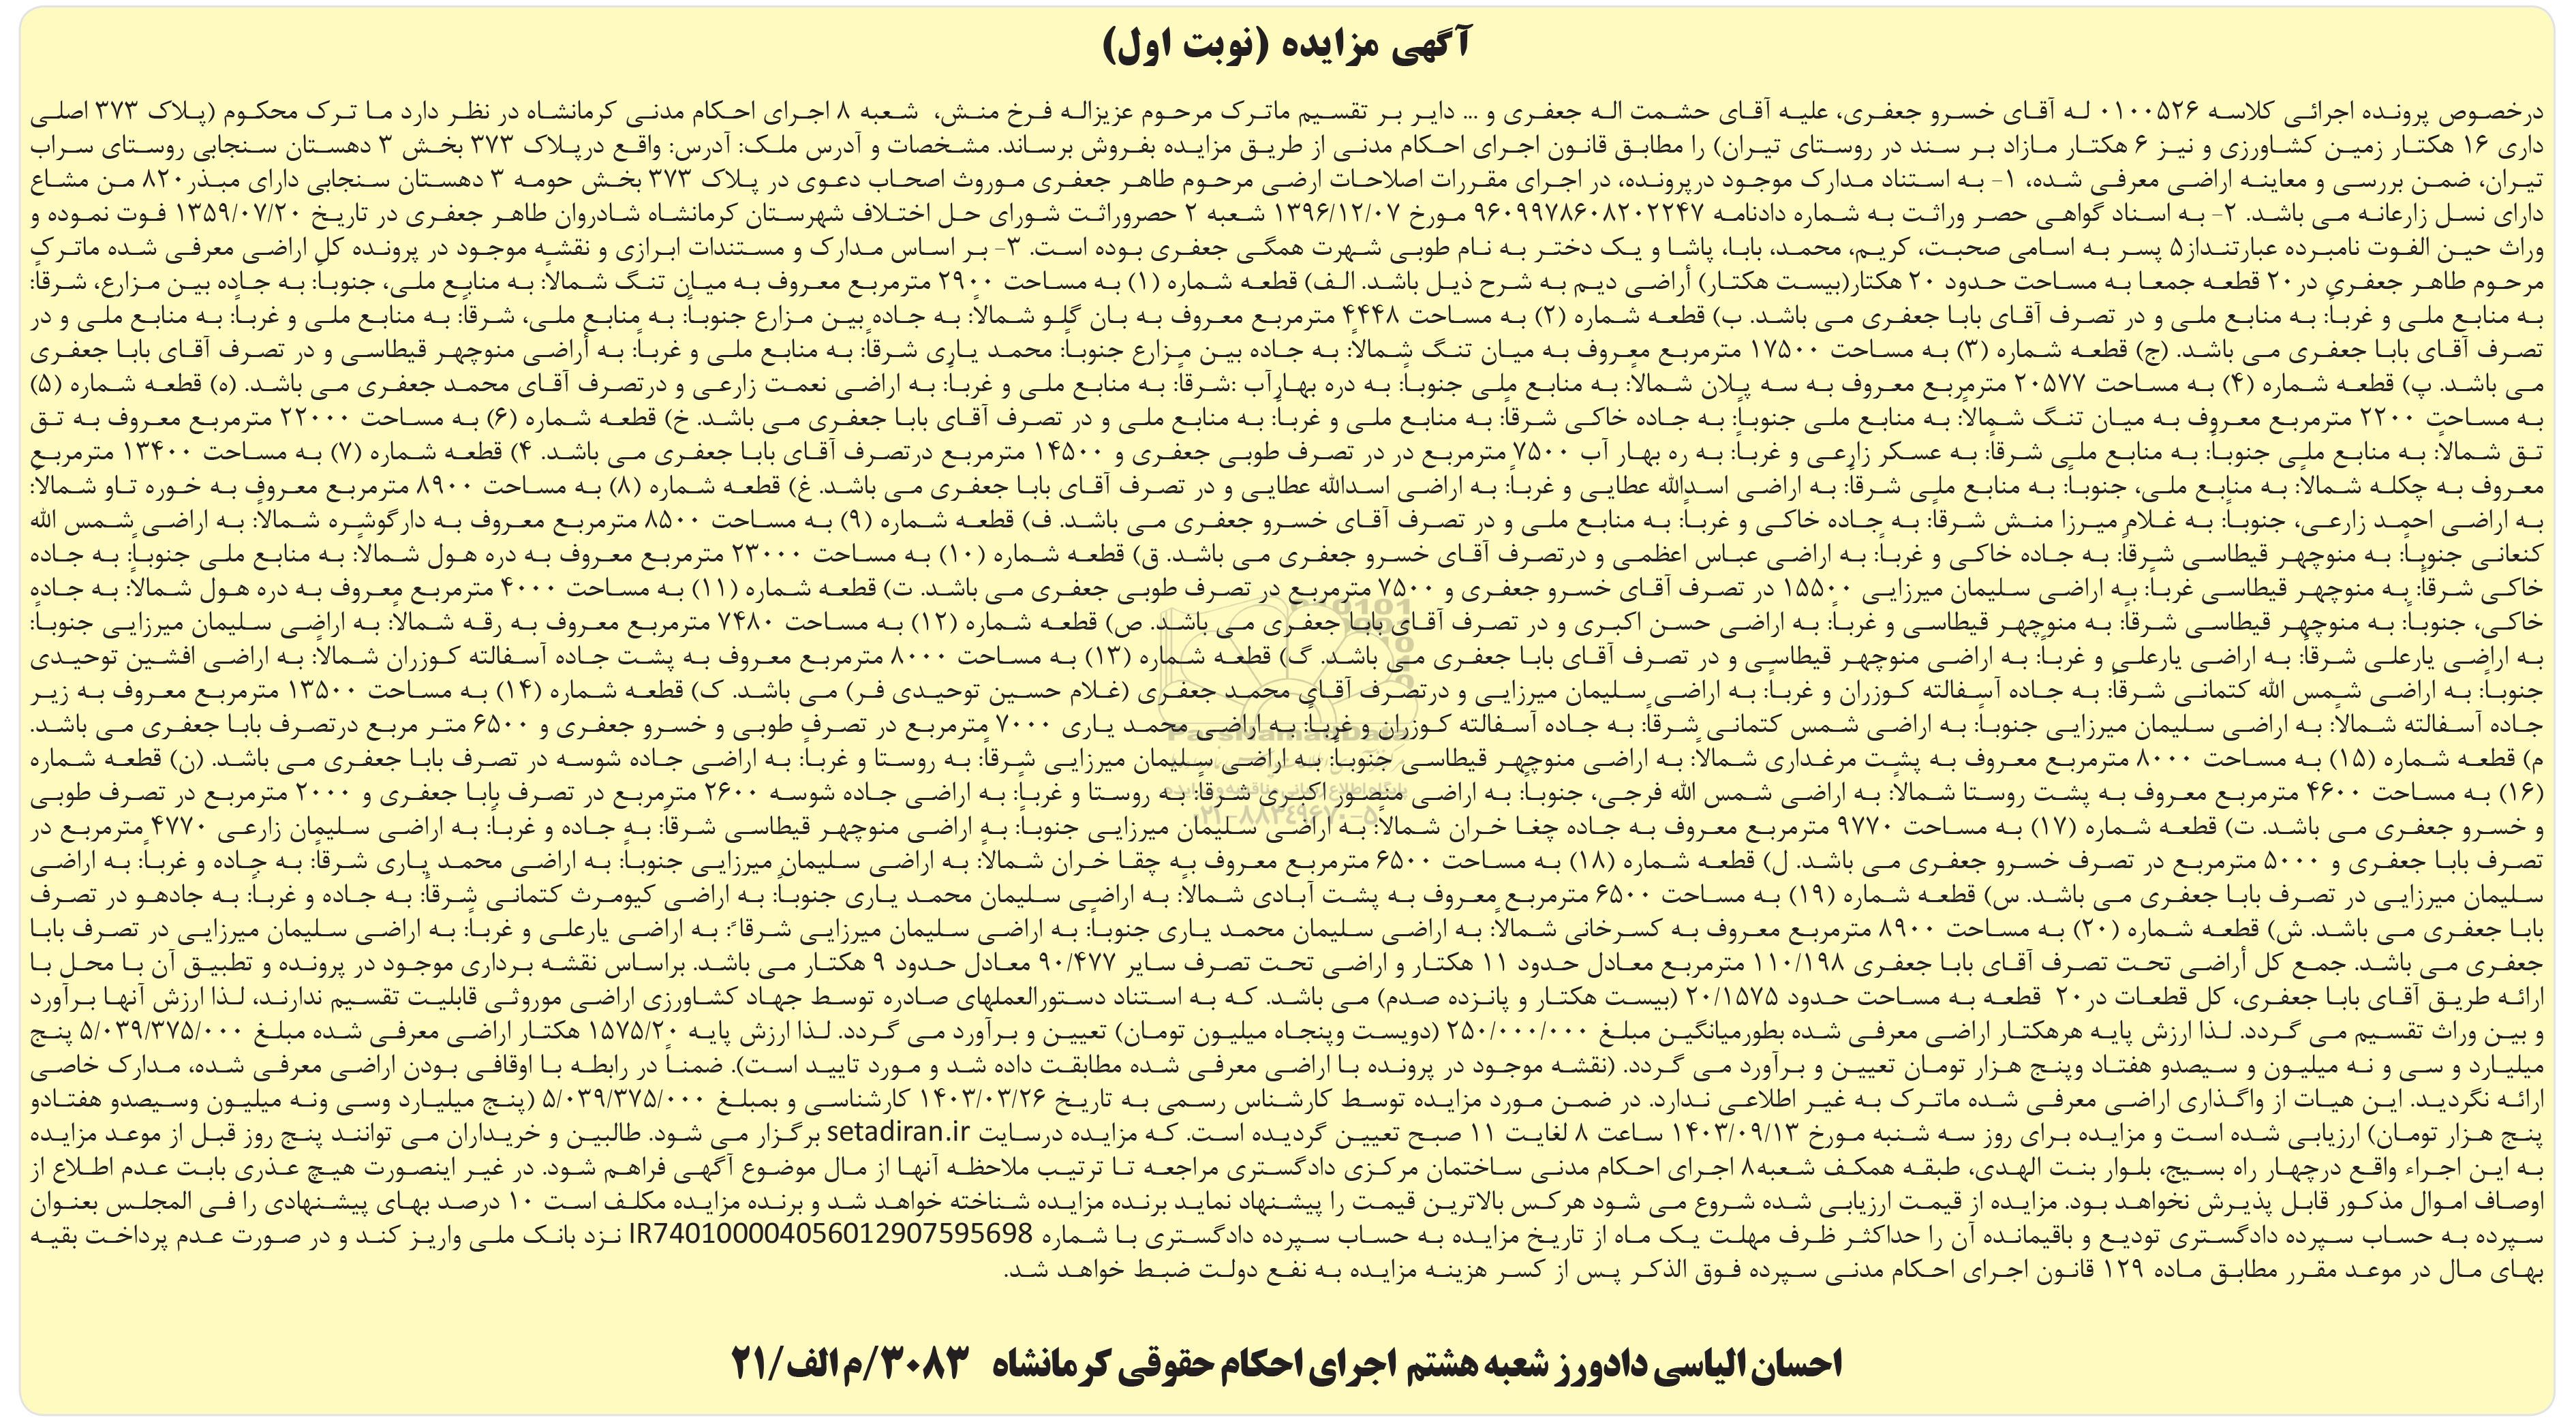 آگهی مزایده (نوبت اول)
درخصوص پرونده اجرائی کلاسه ۰۱۰۰۵۲۶ له آقای خسرو جعفری، علیه آقای حشمت اله جعفری و ... دایر بر تقسیم ماترک مرحوم عزیزاله فرخ منش، شعبه ۸ اجرای احکام مدنی کرمانشاه در نظر دارد ما ترک محکوم (پلاک ۳۷۳ اصلی
داری ۱۶ هکتار زمین کشاورزی و نیز ۶ هکتار مازاد بر سند در روستای تیران) را مطابق قانون اجرای احکام مدنی از طریق مزایده بفروش برساند. مشخصات و آدرس ملک: آدرس: واقع درپلاک ۳۷۳ بخش ۳ دهستان سنجابی روستای سراب
تیران، ضمن بررسی و معاینه اراضی معرفی شده، ۱- به استناد مدارک موجود درپرونده، در اجرای مقررات اصلاحات ارضی مرحوم طاهر جعفری موروث اصحاب دعوی در پلاک ۳۷۳ بخش حومه ۳ دهستان سنجابی دارای مبذر۸۲۰ من مشاع
دارای نسل زارعانه می باشد. ۲- به اسناد گواهی حصر وراثت به شماره دادنامه ۹۶۰۹۹۷۸۶۰۸۲۰۲۲۴۷ مورخ ۱۳۹۶/۱۲/۰۷ شعبه ۲ حصروراثت شورای حل اختلاف شهرستان کرمانشاه شادروان طاهر جعفری در تاریخ ۱۳۵۹/۰۷/۲۰ فوت نموده و
وراث حین الفوت نامبرده عبارتنداز۵ پسر به اسامی صحبت، کریم، محمد، بابا، پاشا و یک دختر به نام طوبی شهرت همگی جعفری بوده است. ۳- بر اساس مدارک و مستندات ابرازی و نقشه موجود در پرونده کل اراضی معرفی شده ماترک
مرحوم طاهر جعفری در۲۰ قطعه جمعا به مساحت حدود ۲۰ هکتار(بیست هکتار) أراضی دیم به شرح ذیل باشد. الف) قطعه شماره (۱) به مساحت ۲۹۰۰ مترمربع معروف به میان تنگ شمالاً: به منابع ملی، جنوباً: به جاده بین مزارع، شرقاً:
به منابع ملی و غرباً: به منابع ملی و در تصرف آقای بابا جعفری می باشد. ب) قطعه شماره (۲) به مساحت ۴۴۴۸ مترمربع معروف به بان گلو شمالاً: به جاده بین مزارع جنوباً: به منابع ملی، شرقاً: به منابع ملی و غرباً: به منابع ملی و در
تصرف آقای بابا جعفری می باشد. (ج) قطعه شماره (۳) به مساحت ۱۷۵۰۰ مترمربع معروف به میان تنگ شمالاً: به جاده بین مزارع جنوباً: محمد یاری شرقاً: به منابع ملی و غرباً: به أراضی منوچهر قیطاسی و در تصرف آقای بابا جعفری
می باشد. پ) قطعه شماره (۴) به مساحت ۲۰۵۷۷ مترمربع معروف به سه پلان شمالاً: به منابع ملی جنوباً: به دره بهارآب :شرقاً: به منابع ملی و غرباً: به اراضی نعمت زارعی و درتصرف آقای محمد جعفری می باشد. (ه) قطعه شماره (۵)
به مساحت ۲۲۰۰ مترمربع معروف به میان تنگ شمالاً: به منابع ملی جنوباً: به جاده خاکی شرقاً: به منابع ملی و غرباً: به منابع ملی و در تصرف آقای بابا جعفری می باشد. خ) قطعه شماره (۶) به مساحت ۲۲۰۰۰ مترمربع معروف به تق
تق شمالاً: به منابع ملی جنوباً: به منابع ملی شرقاً: به عسکر زارعی و غرباً: به ره بهار آب ۷۵۰۰ مترمربع در در تصرف طوبی جعفری و ۱۴۵۰۰ مترمربع درتصرف آقای بابا جعفری می باشد. ۴) قطعه شماره (۷) به مساحت ۱۳۴۰۰ مترمربع
معروف به چکله شمالاً: به منابع ملی، جنوباً: به منابع ملی شرقاً: به اراضی اسدالله عطایی و غرباً: به اراضی اسدالله عطایی و در تصرف آقای بابا جعفری می باشد. غ) قطعه شماره (۸) به مساحت ۸۹۰۰ مترمربع معروف به خوره تاو شمالاً:
به اراضی احمد زارعی، جنوباً: به غلام میرزا منش شرقاً: به جاده خاکی و غرباً: به منابع ملی و در تصرف آقای خسرو جعفری می باشد. ف) قطعه شماره (۹) به مساحت ۸۵۰۰ مترمربع معروف به دارگوشره شمالاً: به اراضی شمس الله
کنعانی جنوباً: به منوچهر قیطاسی شرقاً: به جاده خاکی و غرباً: به اراضی عباس اعظمی و درتصرف آقای خسرو جعفری می باشد. ق) قطعه شماره (۱۰) به مساحت ۲۳۰۰۰ مترمربع معروف به دره هول شمالاً: به منابع ملی جنوباً: به جاده
خاکی شرقاً: به منوچهر قیطاسی غرباً: به اراضی سلیمان میرزایی ۱۵۵۰۰ در تصرف آقای خسرو جعفری و ۷۵۰۰ مترمربع در تصرف طوبی جعفری می باشد. ت) قطعه شماره (۱۱) به مساحت ۴۰۰۰ مترمربع معروف به دره هول شمالاً: به جاده
خاکی، جنوباً: به منوچهر قیطاسی شرقاً: به منوچهر قیطاسی و غرباً: به اراضی حسن اکبری و در تصرف آقای بابا جعفری می باشد. ص) قطعه شماره (۱۲) به مساحت ۷۴۸۰ مترمربع معروف به رقه شمالاً: به اراضی سلیمان میرزایی جنوباً:
به اراضی یارعلی شرقاً: به اراضی یارعلی و غرباً: به اراضی منوچهر قیطاسی و در تصرف آقای بابا جعفری می باشد. گ) قطعه شماره (۱۳) به مساحت ۸۰۰۰ مترمربع معروف به پشت جاده آسفالته کوزران شمالاً: به اراضی افشین توحیدی
جنوباً: به اراضی شمس الله کتمانی شرقاً: به جاده آسفالته کوزران و غرباً: به اراضی سلیمان میرزایی و درتصرف آقای محمد جعفری (غلام حسین توحیدی فر) می باشد. ک) قطعه شماره (۱۴) به مساحت ۱۳۵۰۰ مترمربع معروف به زیر
جاده آسفالته شمالاً: به اراضی سلیمان میرزایی جنوباً: به اراضی شمس کتمانی شرقاً: به جاده آسفالته کوزران و غرباً: به اراضی محمد یاری ۷۰۰۰ مترمربع در تصرف طوبی و خسرو جعفری و ۶۵۰۰ متر مربع درتصرف بابا جعفری می باشد.
م) قطعه شماره (۱۵) به مساحت ۸۰۰۰ مترمربع معروف به پشت مرغداری شمالاً: به اراضی منوچهر قیطاسی جنوباً: به اراضی سلیمان میرزایی شرقاً: به روستا و غرباً: به اراضی جاده شوسه در تصرف بابا جعفری می باشد. (ن) قطعه شماره
(۱۶) به مساحت ۴۶۰۰ مترمربع معروف به پشت روستا شمالاً: به اراضی شمس الله فرجی، جنوباً: به اراضی منصور اکبری شرقاً: به روستا و غرباً: به اراضی جاده شوسه ۲۶۰۰ مترمربع در تصرف بابا جعفری و ۲۰۰۰ مترمربع در تصرف طوبی
و خسرو جعفری می باشد. ت) قطعه شماره (۱۷) به مساحت ۹۷۷۰ مترمربع معروف به جاده چغا خران شمالاً: به اراضی سلیمان میرزایی جنوباً: به اراضی منوچهر قیطاسی شرقاً: به جاده و غرباً: به اراضی سلیمان زارعی ۴۷۷۰ مترمربع در
تصرف بابا جعفری و ۵۰۰۰ مترمربع در تصرف خسرو جعفری می باشد. ل) قطعه شماره (۱۸) به مساحت ۶۵۰۰ مترمربع معروف به چقا خران شمالاً: به اراضی سلیمان میرزایی جنوباً: به اراضی محمد یاری شرقاً: به جاده و غرباً: به اراضی
سلیمان میرزایی در تصرف بابا جعفری می باشد. س) قطعه شماره (۱۹) به مساحت ۶۵۰۰ مترمربع معروف به پشت آبادی شمالاً: به اراضی سلیمان محمد یاری جنوباً: به اراضی کیومرث کتمانی شرقاً: به جاده و غرباً: به جادهو در تصرف
بابا جعفری می باشد. ش) قطعه شماره (۲۰) به مساحت ۸۹۰۰ مترمربع معروف به کسرخانی شمالاً: به اراضی سلیمان محمد یاری جنوباً: به اراضی سلیمان میرزایی شرقاً: به اراضی یارعلی و غرباً: به اراضی سلیمان میرزایی در تصرف بابا
جعفری می باشد. جمع کل أراضی تحت تصرف آقای بابا جعفری ۱۱۰/۱۹۸ مترمربع معادل حدود ۱۱ هکتار و اراضی تحت تصرف سایر ۹۰/۴۷۷ معادل حدود ۹ هکتار می باشد. براساس نقشه برداری موجود در پرونده و تطبیق آن با محل با
ارائه طریق آقای بابا جعفری، کل قطعات در۲۰ قطعه به مساحت حدود ۲۰/۱۵۷۵ (بیست هکتار و پانزده صدم) می باشد. که به استناد دستورالعملهای صادره توسط جهاد کشاورزی اراضی موروثی قابلیت تقسیم ندارند، لذا ارزش آنها برآورد
و بین وراث تقسیم می گردد. لذا ارزش پایه هرهکتار اراضی معرفی شده بطورمیانگین مبلغ ۲۵۰/۰۰۰/۰۰۰ (دویست وپنجاه میلیون تومان) تعیین و برآورد می گردد. لذا ارزش پایه ۱۵۷۵/۲۰ هکتار اراضی معرفی شده مبلغ ۵/۰۳۹/۳۷۵/۰۰۰ پنج
میلیارد و سی و نه میلیون و سیصدو هفتاد وپنج هزار تومان تعیین و برآورد می گردد. (نقشه موجود در پرونده با اراضی معرفی شده مطابقت داده شد و مورد تایید است). ضمناً در رابطه با اوقافی بودن اراضی معرفی شده، مدارک خاصی
ارائه نگردید. این هیات از واگذاری اراضی معرفی شده ماترک به غیر اطلاعی ندارد. در ضمن مورد مزایده توسط کارشناس رسمی به تاریخ ۱۴۰۳/۰۳/۲۶ کارشناسی و بمبلغ ۵/۰۳۹/۳۷۵/۰۰۰ (پنج میلیارد وسی ونه میلیون وسیصدو هفتادو
پنج هزار تومان) ارزیابی شده است و مزایده برای روز سه شنبه مورخ ۱۴۰۳/۰۹/۱۳ ساعت ۸ لغایت ۱۱ صبح تعیین گردیده است. که مزایده درسایت setadiran.ir برگزار می شود. طالبین و خریداران می توانند پنج روز قبل از موعد مزایده
به این اجراء واقع درچهار راه بسیج، بلوار بنت الهدی، طبقه همکف شعبه۸ اجرای احکام مدنی ساختمان مرکزی دادگستری مراجعه تا ترتیب ملاحظه آنها از مال موضوع آگهی فراهم شود. در غیر اینصورت هیچ عذری بابت عدم اطلاع از
اوصاف اموال مذکور قابل پذیرش نخواهد بود. مزایده از قیمت ارزیابی شده شروع می شود هرکس بالاترین قیمت را پیشنهاد نماید برنده مزایده شناخته خواهد شد و برنده مزایده مکلف است ۱۰ درصد بهای پیشنهادی را فی المجلس بعنوان
سپرده به حساب سپرده دادگستری تودیع و باقیمانده آن را حداکثر ظرف مهلت یک ماه از تاریخ مزایده به حساب سپرده دادگستری با شماره IR740100004056012907595698 نزد بانک ملی واریز کند و در صورت عدم پرداخت بقیه
بهای مال در موعد مقرر مطابق ماده ۱۲۹ قانون اجرای احکام مدنی سپرده فوق الذکر پس از کسر هزینه مزایده به نفع دولت ضبط خواهد شد.
احسان الیاسی دادورز شعبه هشتم اجرای احکام حقوقی کرمانشاه ۳۰۸۳/م الف/۲۱